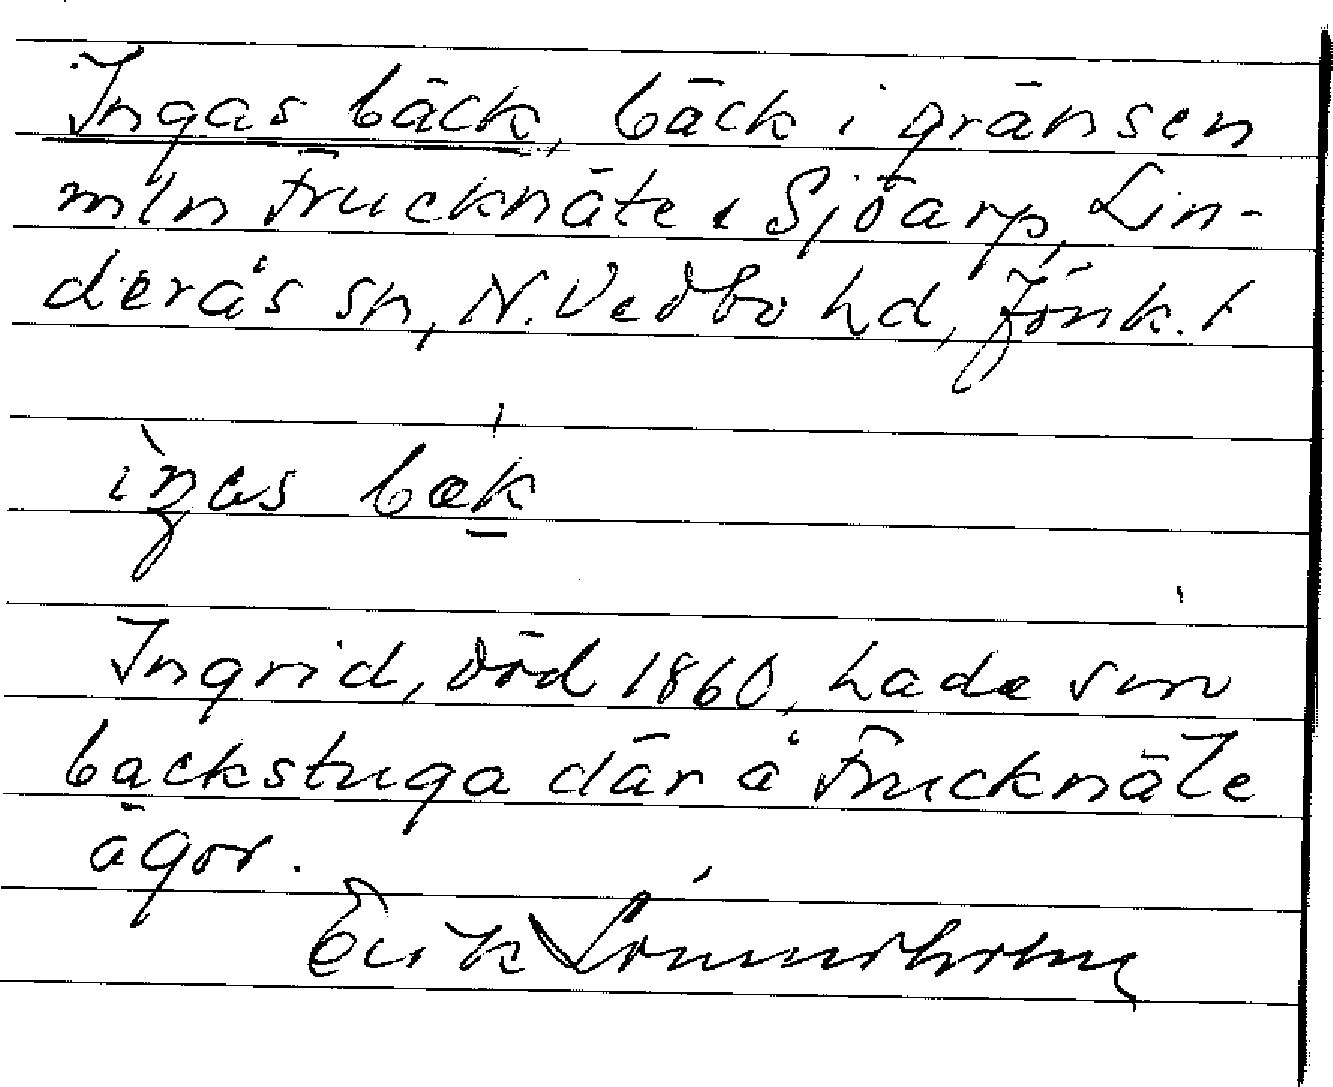 Ingas bäck, bäck i gränsen
mln Frucknäte & Sjöarp, Lin-
derås sn, N. Vedbo hd, Jönk. l
ìŋas bæk
Ingrid, död 1860, hade sin
backstuga där å Frucknäte
ägor.
Erik